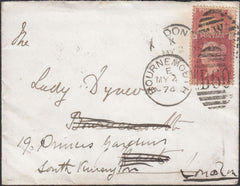 The
LONDON
X
BOURNEMOUTH
MY 2
74
B60
Lady
Bournemouth
19 Princes Gardens
South Kensington
London